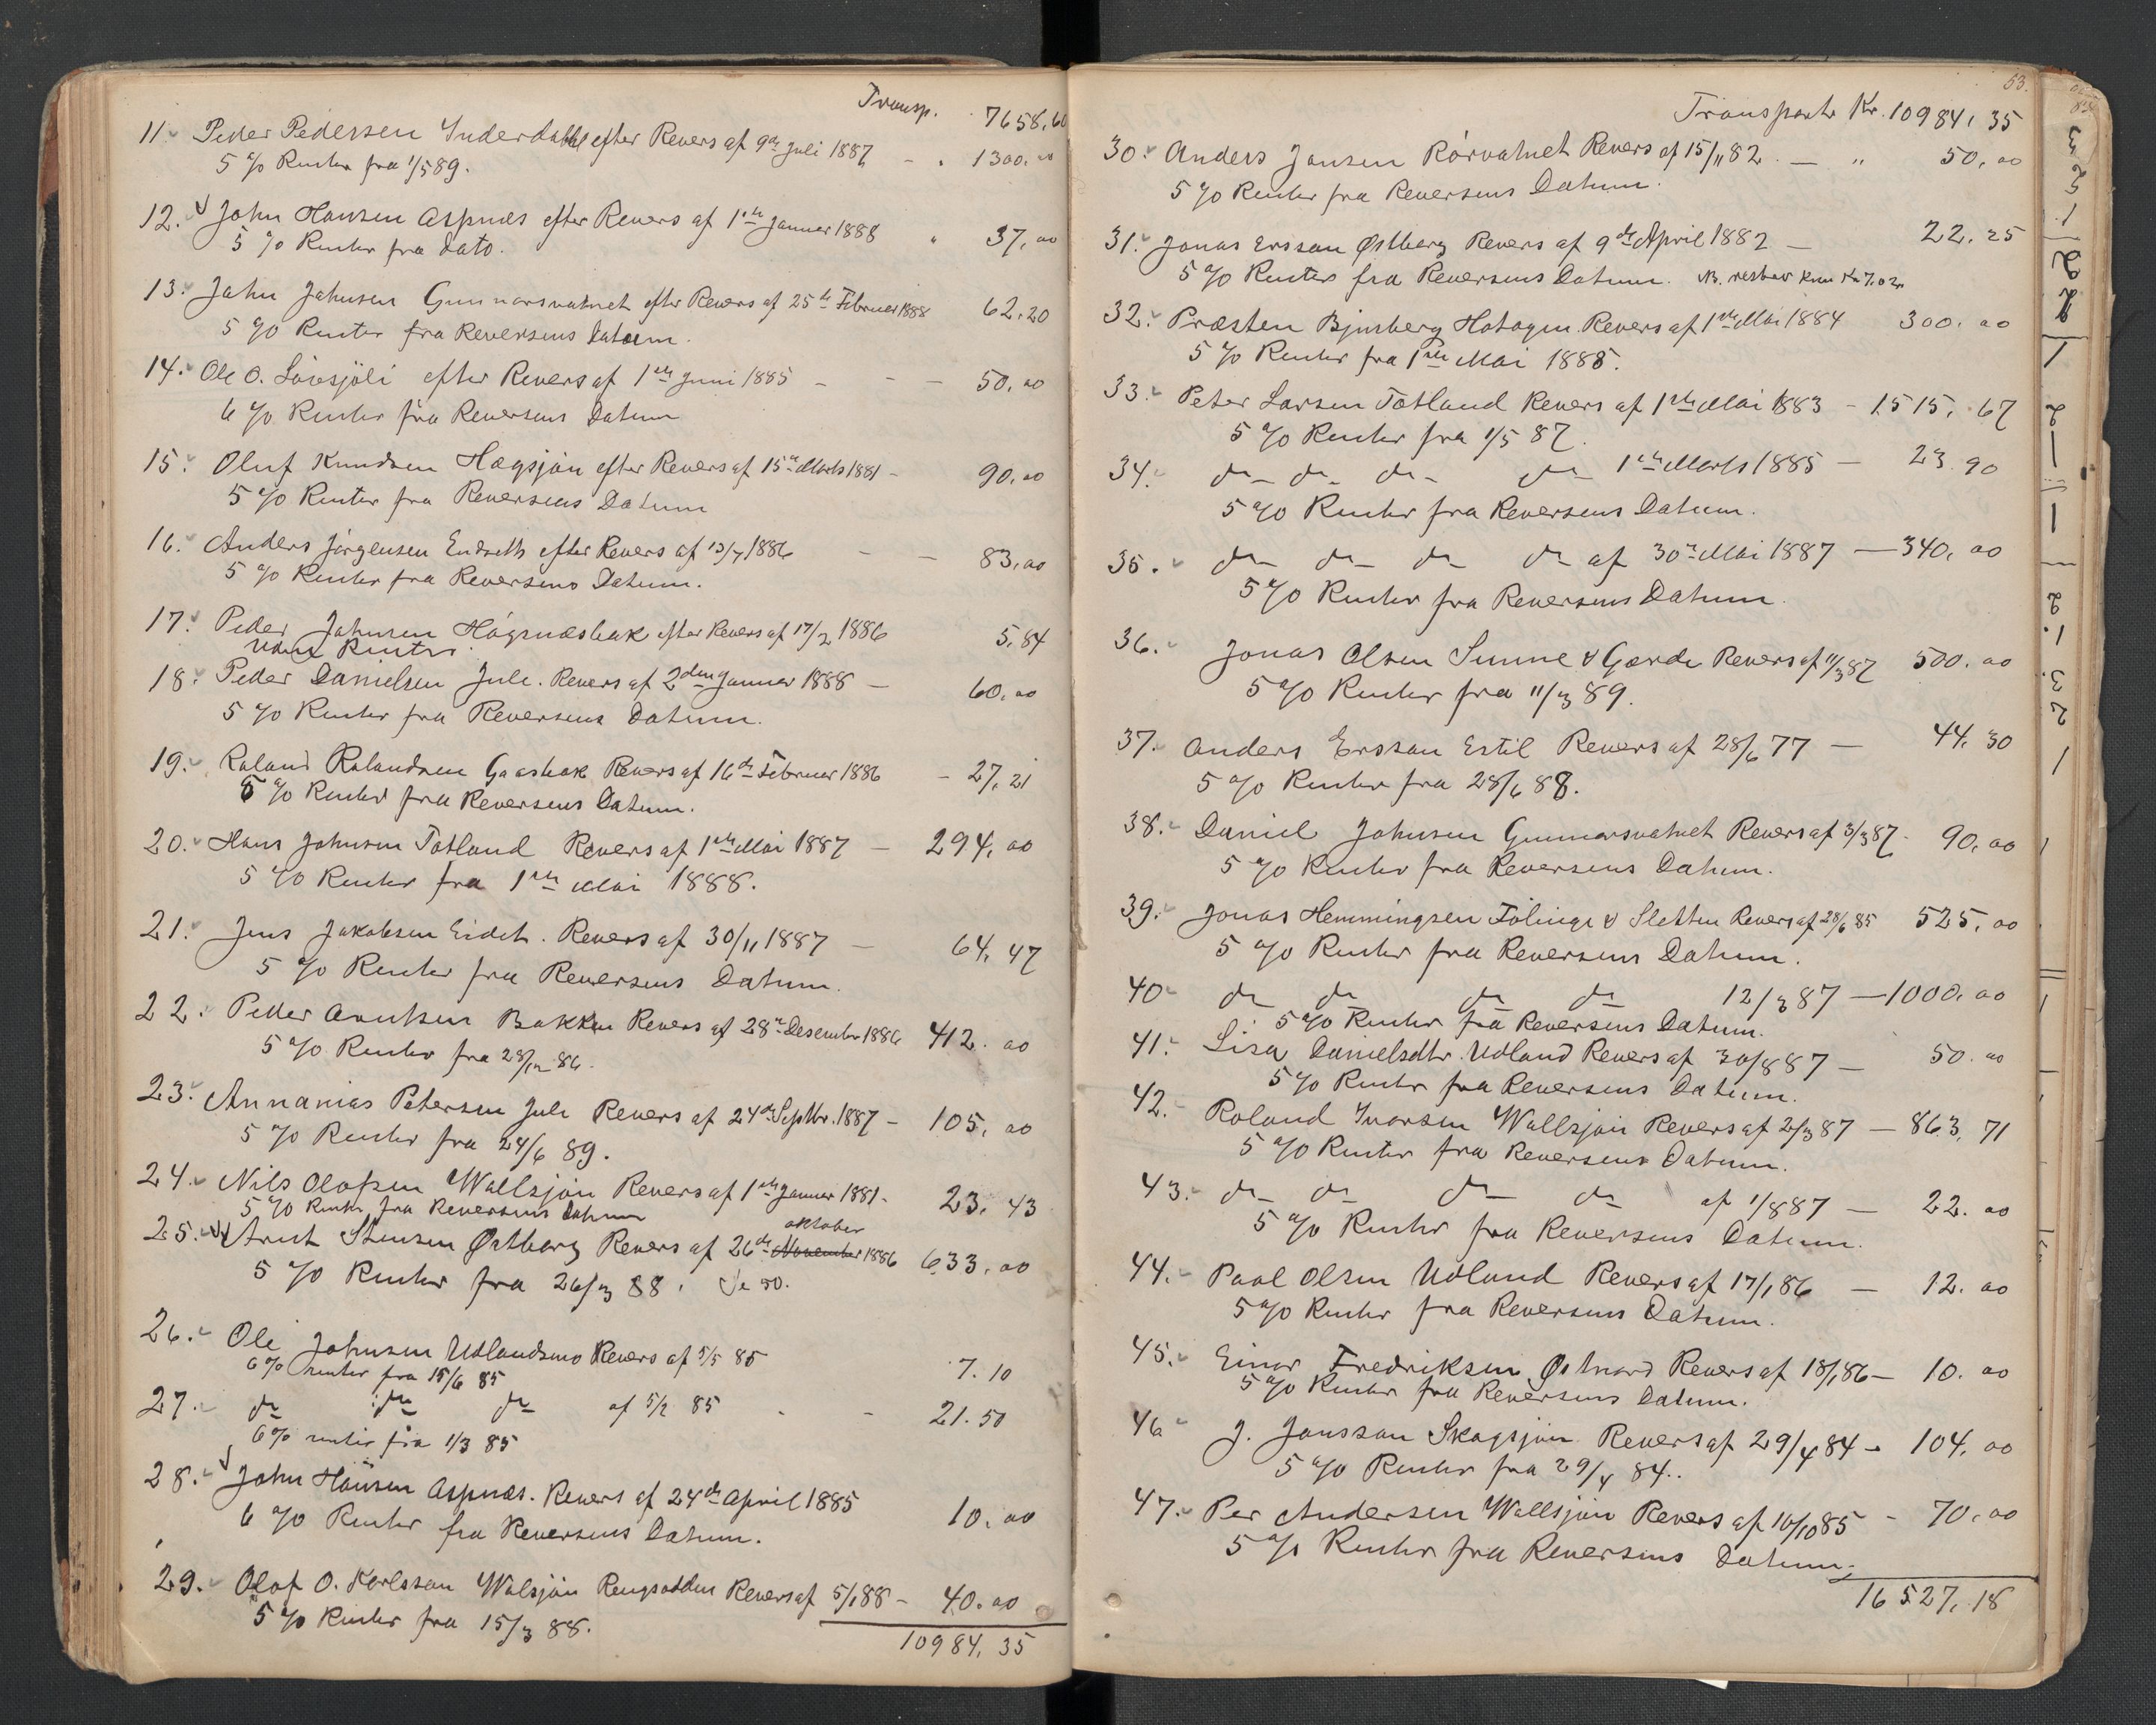 Transp. 7658,60
11. Peder Pedersen Inderdahl efter Revers af 9de Juli 1887 - " 1300.00
5 % Renter fra 1/5 89.
12. John Hansen Aspnæs efter Revers af 1ste Januar 1888 " 37,00
5 % Renter fra Dato.
13. John Johnsen Gunnarsvatnet efter Revers af 25de Februar 1888 62,20
5 % Renter fra Reversens Datum.
14. Ole O. Løvsjöli efter Revers af 1ste Juni 1885 - - - 50,00
6 % Renter fra Reversens Datum
15. Oluf Knudsen Hægsjön efter Revers af 15de Marts 1881 - 90,00
5 % Renter fra Reversens Datum
16. Anders Jørgensen Endseth efter Revers af 13/7 1886 - - 83,00
5 % Renter fra Reversens Datum.
17. Peder Johnsen Högsnæsbak efter Revers af 17/2 1886 5,84
uden Renter.
18. Peder Danielsen Jule. Revers af 2den Januar 1888 - 60,00
5 % Renter fra Reversens Datum.
19. Roland Rolandsen Gaasbak Revers af 16de Februar 1886 - 27,21
5 % Renter fra Reversens Datum.
20. Hans Johnsen Totland Revers af 1ste Mai 1887 - 294,00
5 % Renter fra 1ste Mai 1888.
21. Jens Jakobsen Eidet. Revers af 30/11 1887 - 64,47
5 % Renter fra Reversens Datum.
22. Peder Arntsen Bakken Revers af 28de Desember 1886 412.00
5 % Renter fra 28/12 86.
23. Annanias Petersen Jule Revers af 24de Septbr. 1887 - 105,00
5 % Renter fra 24/6 89.
24. Nils Olofsen Wallsjön Revers af 1ste Januar 1881 - 23,43
5 % Renter fra Reversens Datum
oktober
25. Arnt Stensen Østberg Revers af 26de November 1886 633,00
5 % Renter fra 26/3 88. Se 50.
26. Ole Johnsen Udlandsmo Revers af 5/5 85 7.10
6 % renter fra 15/6 85
27. do do do af 5/2 85 - - 21.50
6 % renter fra 1/3 85
28. John Hansen Aspnæs. Revers af 24de April 1885 10,00
6 % Renter fra Reversens Datum.
29. Olof O. Karlsson Walsjön Revers af 5/1 88 - 40.00
5 % Renter fra 15/3 88.
10984,35
53.
Transport Kr. 10984,35
30. Anders Jonsen Rörvatnet Revers af 15/11 82. - " 50,00
5 % Renter fra Reversens Datum.
31. Jonas Ersson Østberg Revers af 9de April 1882 - 22.25
5 % Renter fra Reversens Datum. NB. restrer kun Kr 7.02
32. Præsten Bjursberg Hotagen Revers af 1ste Mai 1884 300.00
5 % Renter fra 1ste Mai 1888.
33. Peter Larsen Totland Revers af 1ste Mai 1883 - 1515,67
5 % Renter fra 1/5 87.
34. do do do do 1ste Marts 1885 - 23.90
5 % Renter fra Reversens Datum.
35. do do do do af 30te Mai 1887 - 340,00
5 % Renter fra Reversens Datum.
36. Jonas Olsen Sunne v Gærde Revers af 11/3 87 500.00
5 % Renter fra 11/3 89.
37. Anders Ersson Estil Revers af 28/6 77 - 44.30
5 % Renter fra 28/6 88.
38. Daniel Johnsen Gunnarsvatnet Revers af 3/3 87. 90,00
5 % Renter fra Reversens Datum.
39. Jonas Hemmingsen Fölinge v Sletten Revers af 28/6 85 525,00
5 % Renter fra Reversens Datum.
40 do do do do 12/3 87 - 1000.00
5 % Renter fra Reversens Datum.
41. Lisa Danielsdtr. Udland Revers af 30/8 87 - 50.00
5 % Renter fra Reversens Datum.
42. Roland Ivarsen Wallsjön Revers af 2/3 87 - 863,71
5 % Renter fra Reversens Datum.
43. do do do do af 1/8 87 - 22.00
5 % Renter fra Reversens Datum.
44. Paal Olsen Udland Revers af 17/1 86 - 12.00
5 % Renter fra Reversens Datum.
45. Einar Fredriksen Østnord Revers af 18/1 86 - 10.00
5 % Renter fra Reversens Datum.
46 J. Jonsson Skogsjön Revers af 29/4 84 - 104,00
5 % Renter fra 29/4 84.
47. Per Andersen Wallsjön Revers af 10/10 85 - 70,00
5 % Renter fra Reversens Datum.
16527,18